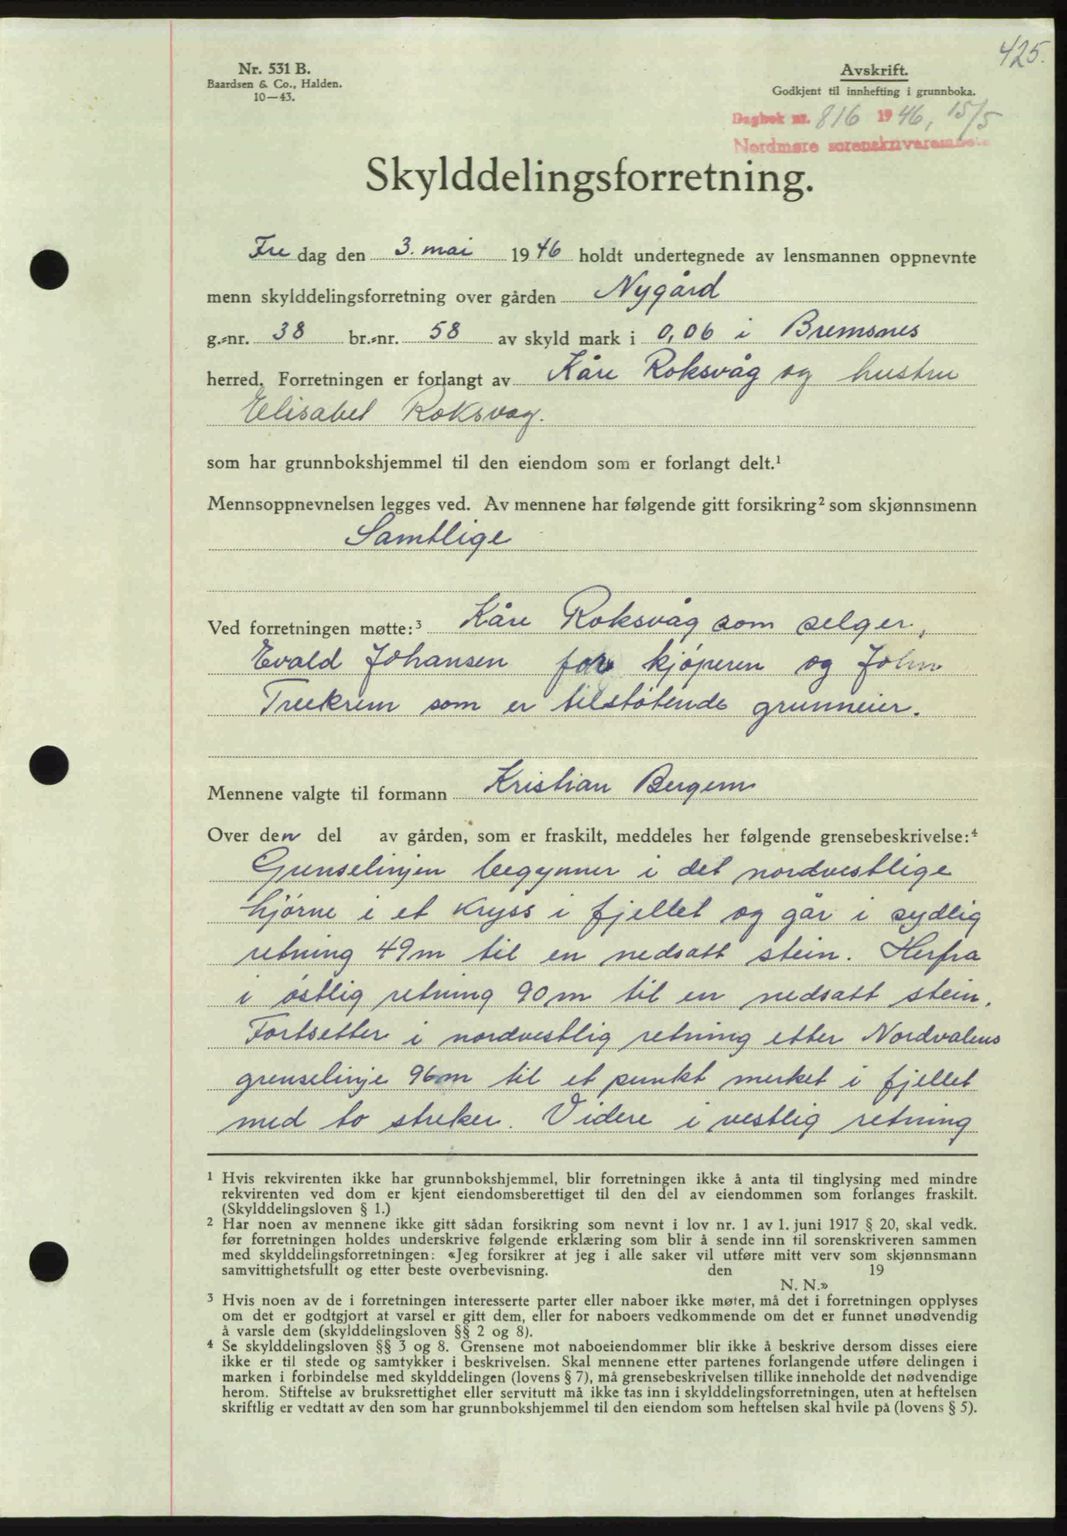 425.
Nr. 531 B.
Baardsen & Co., Halden.
10—43.
Avskrift.
Godkjent til innhefting i grunnboka.
Dagbok nr. 816 1946, 15/5
Nordmøre sorenskriverembete
Skylddelingsforretning.
Fredag den 3. mai 1946 holdt undertegnede av lensmannen oppnevnte
menn skylddelingsforretning over gården Nygård
g.-nr. 38 br.-nr. 58 av skyld mark i 0,06 i Bremsnes
herred. Forretningen er forlangt av Kåre Roksvåg og hustru
Elisabet Roksvåg.
som har grunnbokshjemmel til den eiendom som er forlangt delt.¹
Mennsoppnevnelsen legges ved. Av mennene har følgende gitt forsikring² som skjønnsmenn
Samtlige
Ved forretningen møtte:³ Kåre Roksvåg som selger,
Evald Johansen for kjøperen og John
Treekrem som er tilstøtende grunneier.
Mennene valgte til formann Kristian Bergem
Over den del av gården, som er fraskilt, meddeles her følgende grensebeskrivelse:⁴
Grenselinjen begynner i det nordvestlige
hjørne i et kryss i fjellet og går i sydlig
retning 49m til en nedsatt stein. Herfra
i østlig retning 90m til en nedsatt stein.
Fortsetter i nordvestlig retning etter Nordvalens
grenselinje 96m til et punkt merket i fjellet
med to streker. Videre i vestlig retning
1 Hvis rekvirenten ikke har grunnbokshjemmel, blir forretningen ikke å anta til tinglysing med mindre
rekvirenten ved dom er kjent eiendomsberettiget til den del av eiendommen som forlanges fraskilt.
(Skylddelingsloven § 1.)
2 Har noen av mennene ikke gitt sådan forsikring som nevnt i lov nr. 1 av 1. juni 1917 § 20, skal vedk.
før forretningen holdes underskrive følgende erklæring som blir å sende inn til sorenskriveren sammen
med skylddelingsforretningen: «Jeg forsikrer at jeg i alle saker vil utføre mitt verv som skjønnsmann
samvittighetsfullt og etter beste overbevisning. den 19
N. N.»
3 Hvis noen av de i forretningen interesserte parter eller naboer ikke møter, må det i forretningen opplyses
om det er godtgjort at varsel er gitt dem, eller for naboers vedkommende om det er funnet unødvendig
å varsle dem (skylddelingsloven §§ 2 og 8).
4 Se skylddelingsloven §§ 3 og 8. Grensene mot naboeiendommer blir ikke å beskrive dersom disses eiere
ikke er til stede og samtykker i beskrivelsen. Skal mennene etter partenes forlangende utføre delingen i
marken i forbindelse med skylddelingen (lovens § 7), må grensebeskrivelsen tillike inneholde det nødvendige
herom. Stiftelse av bruksrettighet eller servitutt må ikke tas inn i skylddelingsforretningen, uten at heftelsen
skriftlig er vedtatt av den som har grunnbokshjemmel til den eiendom som heftelsen skal hvile på (lovens § 5).